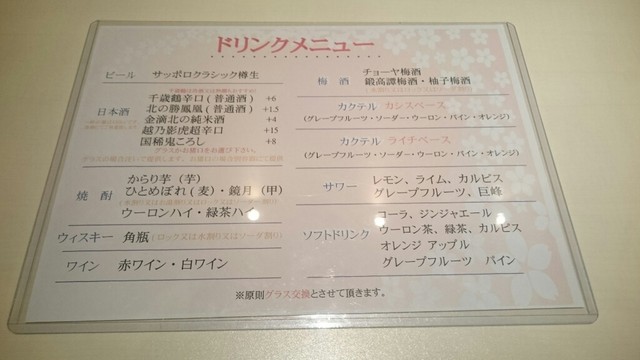 ドリンクメニュー
ビール サッポロクラシック樽生
日本酒
千歳鶴辛口(普通酒) +6
北の勝鳳凰(普通酒) +1.5
金滴北の純米酒 +4
越乃影虎超辛口 +15
国稀鬼ころし +8
グラスかお猪口をお選び下さい。
焼酎
からり芋(芋)
ひとめぼれ(麦)・鏡月(甲)
ウーロンハイ・緑茶ハイ
ウィスキー 角瓶(ロック又は水割り又はソーダ割り)
ワイン 赤ワイン・白ワイン
梅酒
チョーヤ梅酒
鍛高譚梅酒・柚子梅酒
カクテル カシスベース
(グレープフルーツ・ソーダー・ウーロン・パイン・オレンジ)
カクテル ライチベース
(グレープフルーツ・ソーダー・ウーロン・パイン・オレンジ)
サワー
レモン、ライム、カルピス
グレープフルーツ、巨峰
ソフトドリンク
コーラ、ジンジャエール
ウーロン茶、緑茶、カルピス
オレンジ アップル
グレープフルーツ パイン
※原則グラス交換とさせて頂きます。